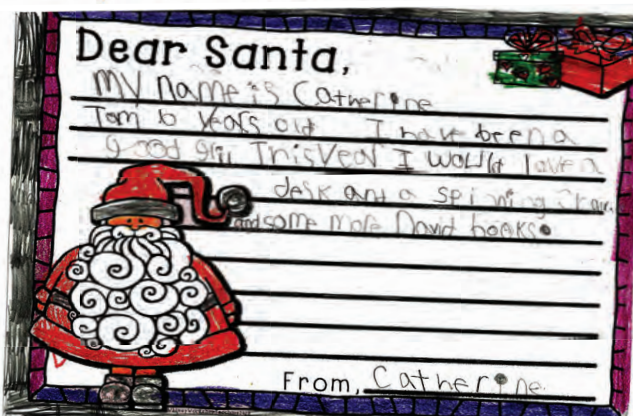 Dear Santa,
MY name is Catherine
I am 6 years old I have been a
good girl This Year I would love a
desk and a spinning chair
and some more David books.
From, Catherine